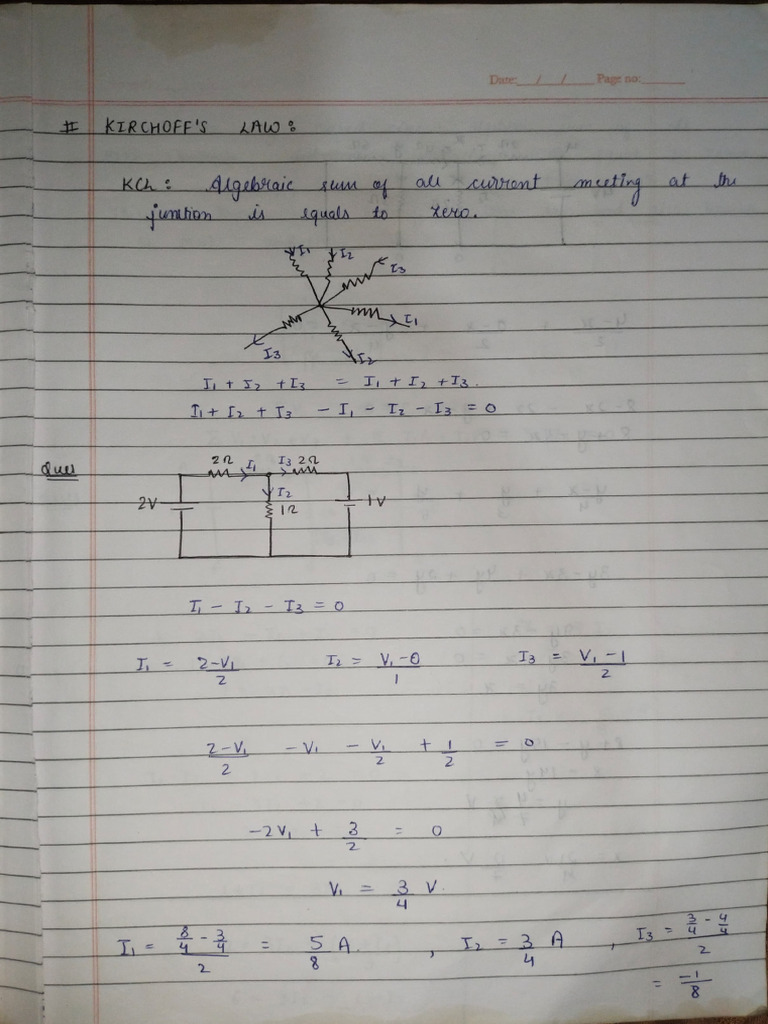 Date: / / Page no:
# KIRCHOFF'S LAW:
KCL: Algebraic sum of all current meeting at the
juntion is equals to zero.
I1 I2 I3
I1
I3 I2
I1 + I2 + I3 = I1 + I2 + I3.
I1 + I2 + I3 - I1 - I2 - I3 = 0
Ques
2Ω I1 I3 2Ω
2V I2 1Ω 1V
I1 - I2 - I3 = 0
I1 = (2-V1)/2 I2 = (V1-0)/1 I3 = (V1-1)/2
(2-V1)/2 - V1 - V1/2 + 1/2 = 0
-2V1 + 3/2 = 0
V1 = 3/4 V.
I1 = (8/4 - 3/4)/2 = 5/8 A. , I2 = 3/4 A , I3 = (3/4 - 4/4)/2
= -1/8